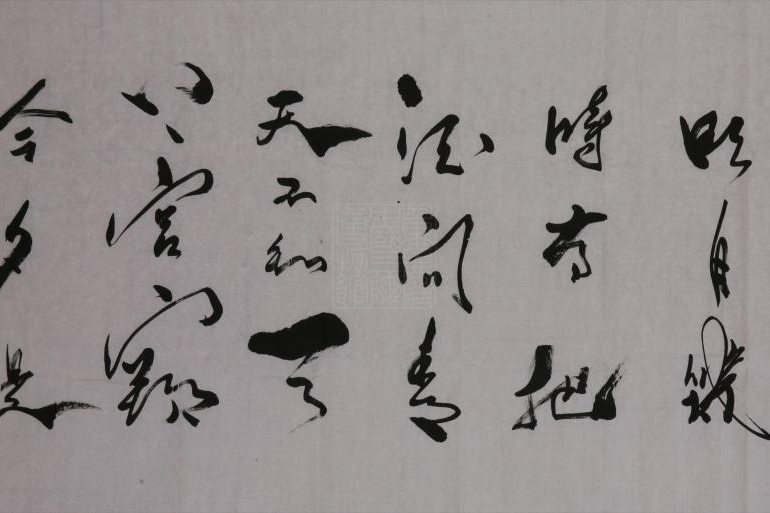 明月幾
時有把
酒問青
天不知天
上宮闕
今夕是